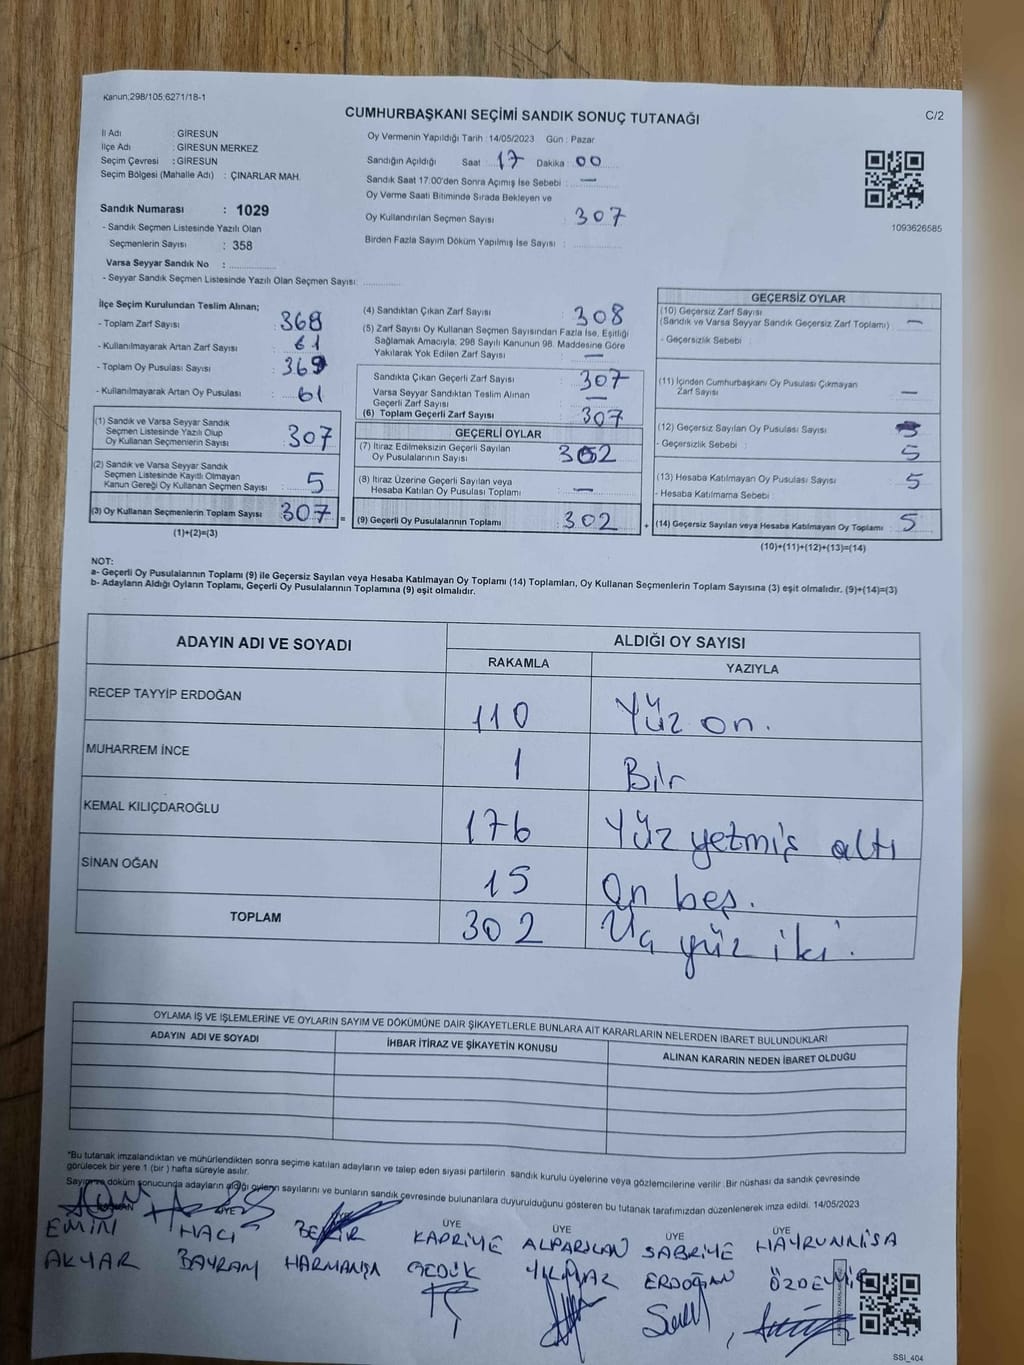 Kanun;298/105;6271/18-1
C/2
CUMHURBAŞKANI SEÇİMİ SANDIK SONUÇ TUTANAĞI
İl Adı : GİRESUN
İlçe Adı : GİRESUN MERKEZ
Seçim Çevresi : GİRESUN
Seçim Bölgesi (Mahalle Adı) : ÇINARLAR MAH.
Sandık Numarası : 1029
- Sandık Seçmen Listesinde Yazılı Olan
Seçmenlerin Sayısı : 358
Varsa Seyyar Sandık No :
- Seyyar Sandık Seçmen Listesinde Yazılı Olan Seçmen Sayısı:
Oy Vermenin Yapıldığı Tarih :14/05/2023 Gün : Pazar
Sandığın Açıldığı Saat : 17 Dakika : 00
Sandık Saat 17:00'den Sonra Açımış İse Sebebi : —
Oy Verme Saati Bitiminde Sırada Bekleyen ve
Oy Kullandırılan Seçmen Sayısı : 307
Birden Fazla Sayım Döküm Yapılmış İse Sayısı :
1093626585
İlçe Seçim Kurulundan Teslim Alınan;
- Toplam Zarf Sayısı : 368
- Kullanılmayarak Artan Zarf Sayısı : 61
- Toplam Oy Pusulası Sayısı : 369
- Kullanılmayarak Artan Oy Pusulası : 61
(1) Sandık ve Varsa Seyyar Sandık
Seçmen Listesinde Yazılı Olup
Oy Kullanan Seçmenlerin Sayısı : 307
(2) Sandık ve Varsa Seyyar Sandık
Seçmen Listesinde Kayıtlı Olmayan
Kanun Gereği Oy Kullanan Seçmen Sayısı : 5
(3) Oy Kullanan Seçmenlerin Toplam Sayısı : 307 =
(1)+(2)=(3)
(4) Sandıktan Çıkan Zarf Sayısı : 308
(5) Zarf Sayısı Oy Kullanan Seçmen Sayısından Fazla İse, Eşitliği
Sağlamak Amacıyla, 298 Sayılı Kanunun 98. Maddesine Göre
Yakılarak Yok Edilen Zarf Sayısı : —
Sandıkta Çıkan Geçerli Zarf Sayısı : 307
Varsa Seyyar Sandıktan Teslim Alınan
Geçerli Zarf Sayısı : —
(6) Toplam Geçerli Zarf Sayısı : 307
GEÇERLİ OYLAR
(7) İtiraz Edilmeksizin Geçerli Sayılan
Oy Pusulalarının Sayısı : 302
(8) İtiraz Üzerine Geçerli Sayılan veya
Hesaba Katılan Oy Pusulası Toplamı : —
(9) Geçerli Oy Pusulalarının Toplamı : 302 +
GEÇERSİZ OYLAR
(10) Geçersiz Zarf Sayısı
(Sandık ve Varsa Seyyar Sandık Geçersiz Zarf Toplamı) : —
- Geçersizlik Sebebi :
(11) İçinden Cumhurbaşkanı Oy Pusulası Çıkmayan
Zarf Sayısı : —
(12) Geçersiz Sayılan Oy Pusulası Sayısı
- Geçersizlik Sebebi : 5
(13) Hesaba Katılmayan Oy Pusulası Sayısı : 5
- Hesaba Katılmama Sebebi :
(14) Geçersiz Sayılan veya Hesaba Katılmayan Oy Toplamı : 5
(10)+(11)+(12)+(13)=(14)
NOT:
a- Geçerli Oy Pusulalarının Toplamı (9) ile Geçersiz Sayılan veya Hesaba Katılmayan Oy Toplamı (14) Toplamları, Oy Kullanan Seçmenlerin Toplam Sayısına (3) eşit olmalıdır. (9)+(14)=(3)
b- Adayların Aldığı Oyların Toplamı, Geçerli Oy Pusulalarının Toplamına (9) eşit olmalıdır.
ADAYIN ADI VE SOYADI ALDIĞI OY SAYISI
RAKAMLA YAZIYLA
RECEP TAYYİP ERDOĞAN 110 Yüz on.
MUHARREM İNCE 1 Bir
KEMAL KILIÇDAROĞLU 176 Yüz yetmiş altı
SİNAN OĞAN 15 On beş.
TOPLAM 302 Üç yüz iki.
OYLAMA İŞ VE İŞLEMLERİNE VE OYLARIN SAYIM VE DÖKÜMÜNE DAİR ŞİKAYETLERLE BUNLARA AİT KARARLARIN NELERDEN İBARET BULUNDUKLARI
ADAYIN ADI VE SOYADI İHBAR İTİRAZ VE ŞİKAYETİN KONUSU ALINAN KARARIN NEDEN İBARET OLDUĞU
*Bu tutanak imzalandıktan ve mühürlendikten sonra seçime katılan adayların ve talep eden siyasi partilerin sandık kurulu üyelerine veya gözlemcilerine verilir .Bir nüshası da sandık çevresinde
görülecek bir yere 1 (bir ) hafta süreyle asılır.
Sayım ve döküm sonucunda adayların aldığı oyların sayılarını ve bunların sandık çevresinde bulunanlara duyurulduğunu gösteren bu tutanak tarafımızdan düzenlenerek imza edildi. 14/05/2023
ÜYE ÜYE ÜYE ÜYE ÜYE
EMİN HACI BEKİR KADRİYE ALPARSLAN SABRİYE HAYRUNNİSA
AKYAR BAYRAM HARMANŞA GEDİK YILMAZ ERDOĞAN ÖZDEMİR
SSI_404